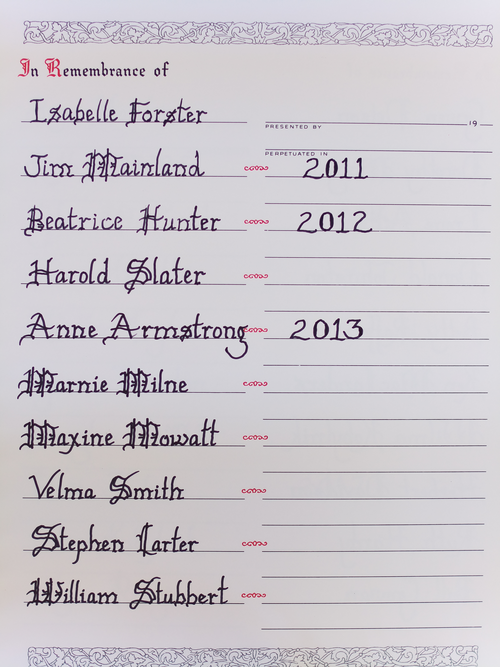 In Remembrance of
Isabelle Forster
PRESENTED BY 19
PERPETUATED IN
Jim Mainland 2011
Beatrice Hunter 2012
Harold Slater
Anne Armstrong 2013
Marnie Milne
Maxine Mowatt
Velma Smith
Stephen Carter
William Stubbert